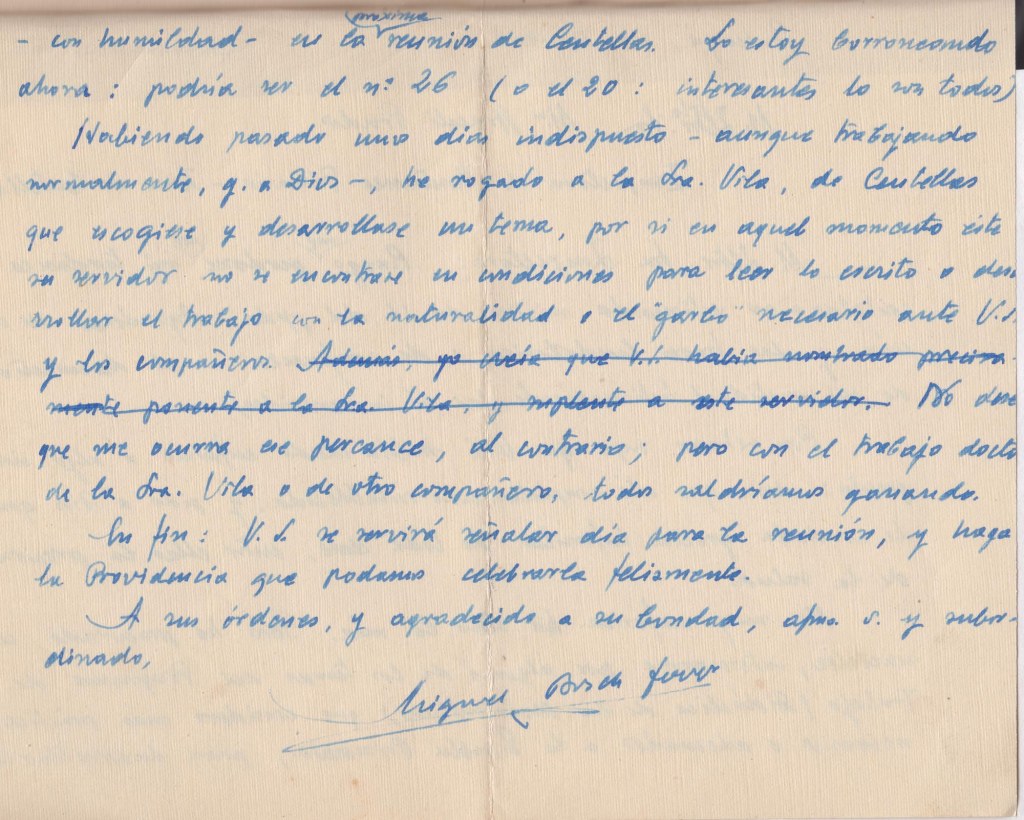 próxima
- con humildad - en la reunión de Centellas. Lo estoy borroneando
ahora: podría ser el nº 26 (o el 20: interesantes lo son todos)
Habiendo pasado unos días indispuesto - aunque trabajando
normalmente, g. a Dios -, he rogado a la Sra. Vila, de Centellas
que escogiese y desarrollase un tema, por si en aquel momento éste
su servidor no se encontrase en condiciones para leer lo escrito o desa
rrollar el trabajo con la naturalidad o el "garbo" necesario ante V.S.
y los compañeros. Además, yo creía que V.S. había nombrado precisa-
mente ponente a la Sra. Vila, y suplente a este servidor. No deseo
que me ocurra ese percance, al contrario; pero con el trabajo docto
de la Sra. Vila o de otro compañero, todos saldríamos ganando.
En fin: V.S. se servirá señalar día para la reunión, y haga
la Providencia que podamos celebrarla felizmente.
A sus órdenes, y agradecido a su bondad, afmo. s. y subor-
dinado,
Miguel Bosch